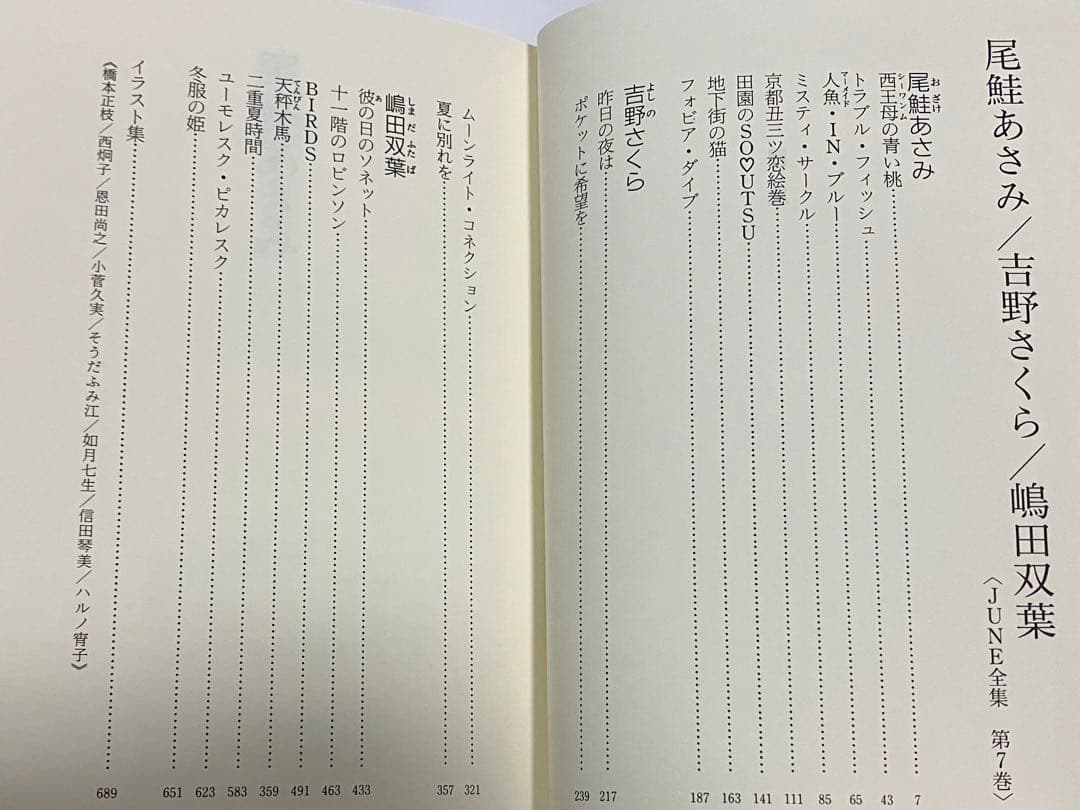 尾鮭あさみ／吉野さくら／嶋田双葉
〈JUNE全集　第7巻〉
おざけ
尾鮭あさみ
シーワンム
西王母の青い桃……7
トラブル・フィッシュ……43
マーメイド
人魚・IN・ブルー……65
ミスティ・サークル……85
京都丑三ツ恋絵巻……111
田園のSO♡UTSU……141
地下街の猫……163
フォビア・ダイブ……187
よしの
吉野さくら
昨日の夜は……217
ポケットに希望を……239
ムーンライト・コネクション……321
夏に別れを……357
しまだふたば
嶋田双葉
あ
彼の日のソネット……433
十一階のロビンソン……463
BIRDS……491
てんびん
天秤木馬……359
二重夏時間……583
ユーモレスク・ピカレスク……623
冬服の姫……651
イラスト集……689
《橋本正枝／西炯子／恩田尚之／小菅久実／そうだふみ江／如月七生／信田琴美／ハルノ宵子》